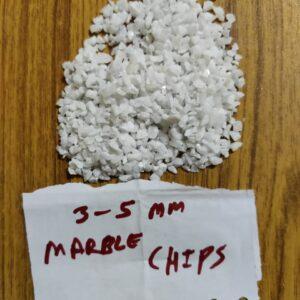 3-5 MM
MARBLE CHIPS